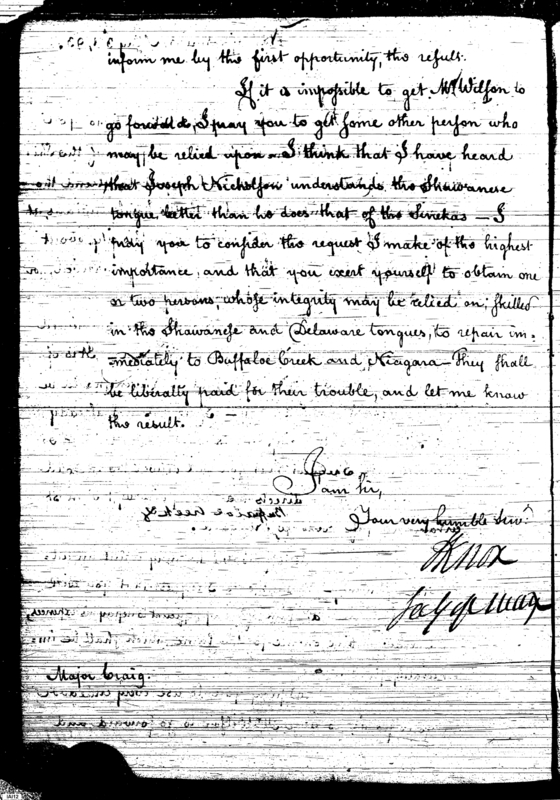 inform me by the first opportunity, the result.
If it is impossible to get Mr. Wilson to
go forward, I pray you to get some other person who
may be relied upon — I think that I have heard
that Joseph Nicholson understands the Shawanese
tongue better than he does that of the Senekas — I
pray you to consider the request I make of the highest
importance, and that you exert yourself to obtain one
or two persons, whose integrity may be relied on; skilled
in the Shawanese and Delaware tongues, to repair im-
mediately to Buffaloe Creek and Niagara — They shall
be liberally paid for their trouble, and let me know
the result.
I am Sir,
Your very humble Servt.
HKnox
Secy of War
Major Craig.